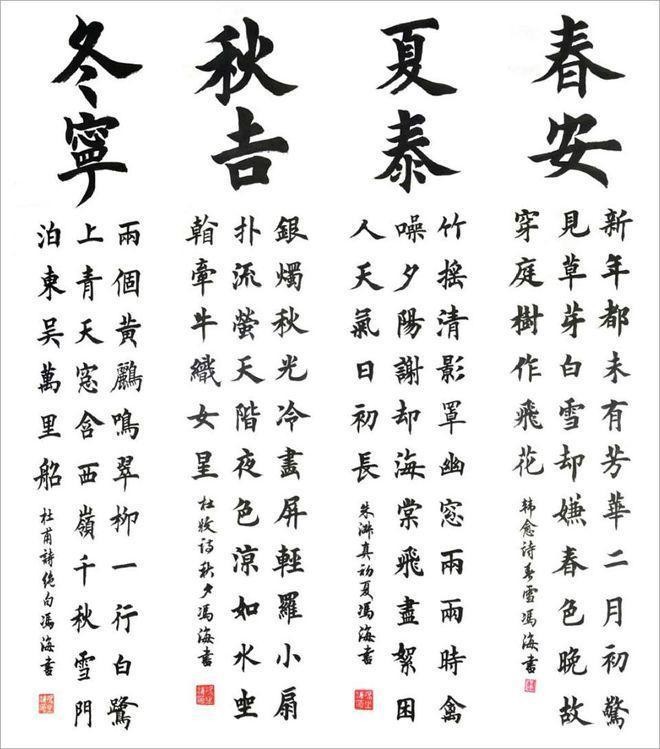 春安
新年都未有芳華二月初驚
見草芽白雪却嫌春色晚故
穿庭樹作飛花
韩愈诗春雪馮海書
夏泰
竹搖清影罩幽窓兩兩時禽
噪夕陽謝却海棠飛盡絮困
人天氣日初長
朱淑真初夏馮海書
秋吉
銀燭秋光冷畫屏輕羅小扇
扑流螢天階夜色涼如水坐
看牽牛織女星
杜牧诗秋夕馮海書
冬寧
兩個黃鸝鳴翠柳一行白鷺
上青天窓含西嶺千秋雪門
泊東吴萬里船
杜甫詩绝句馮海書